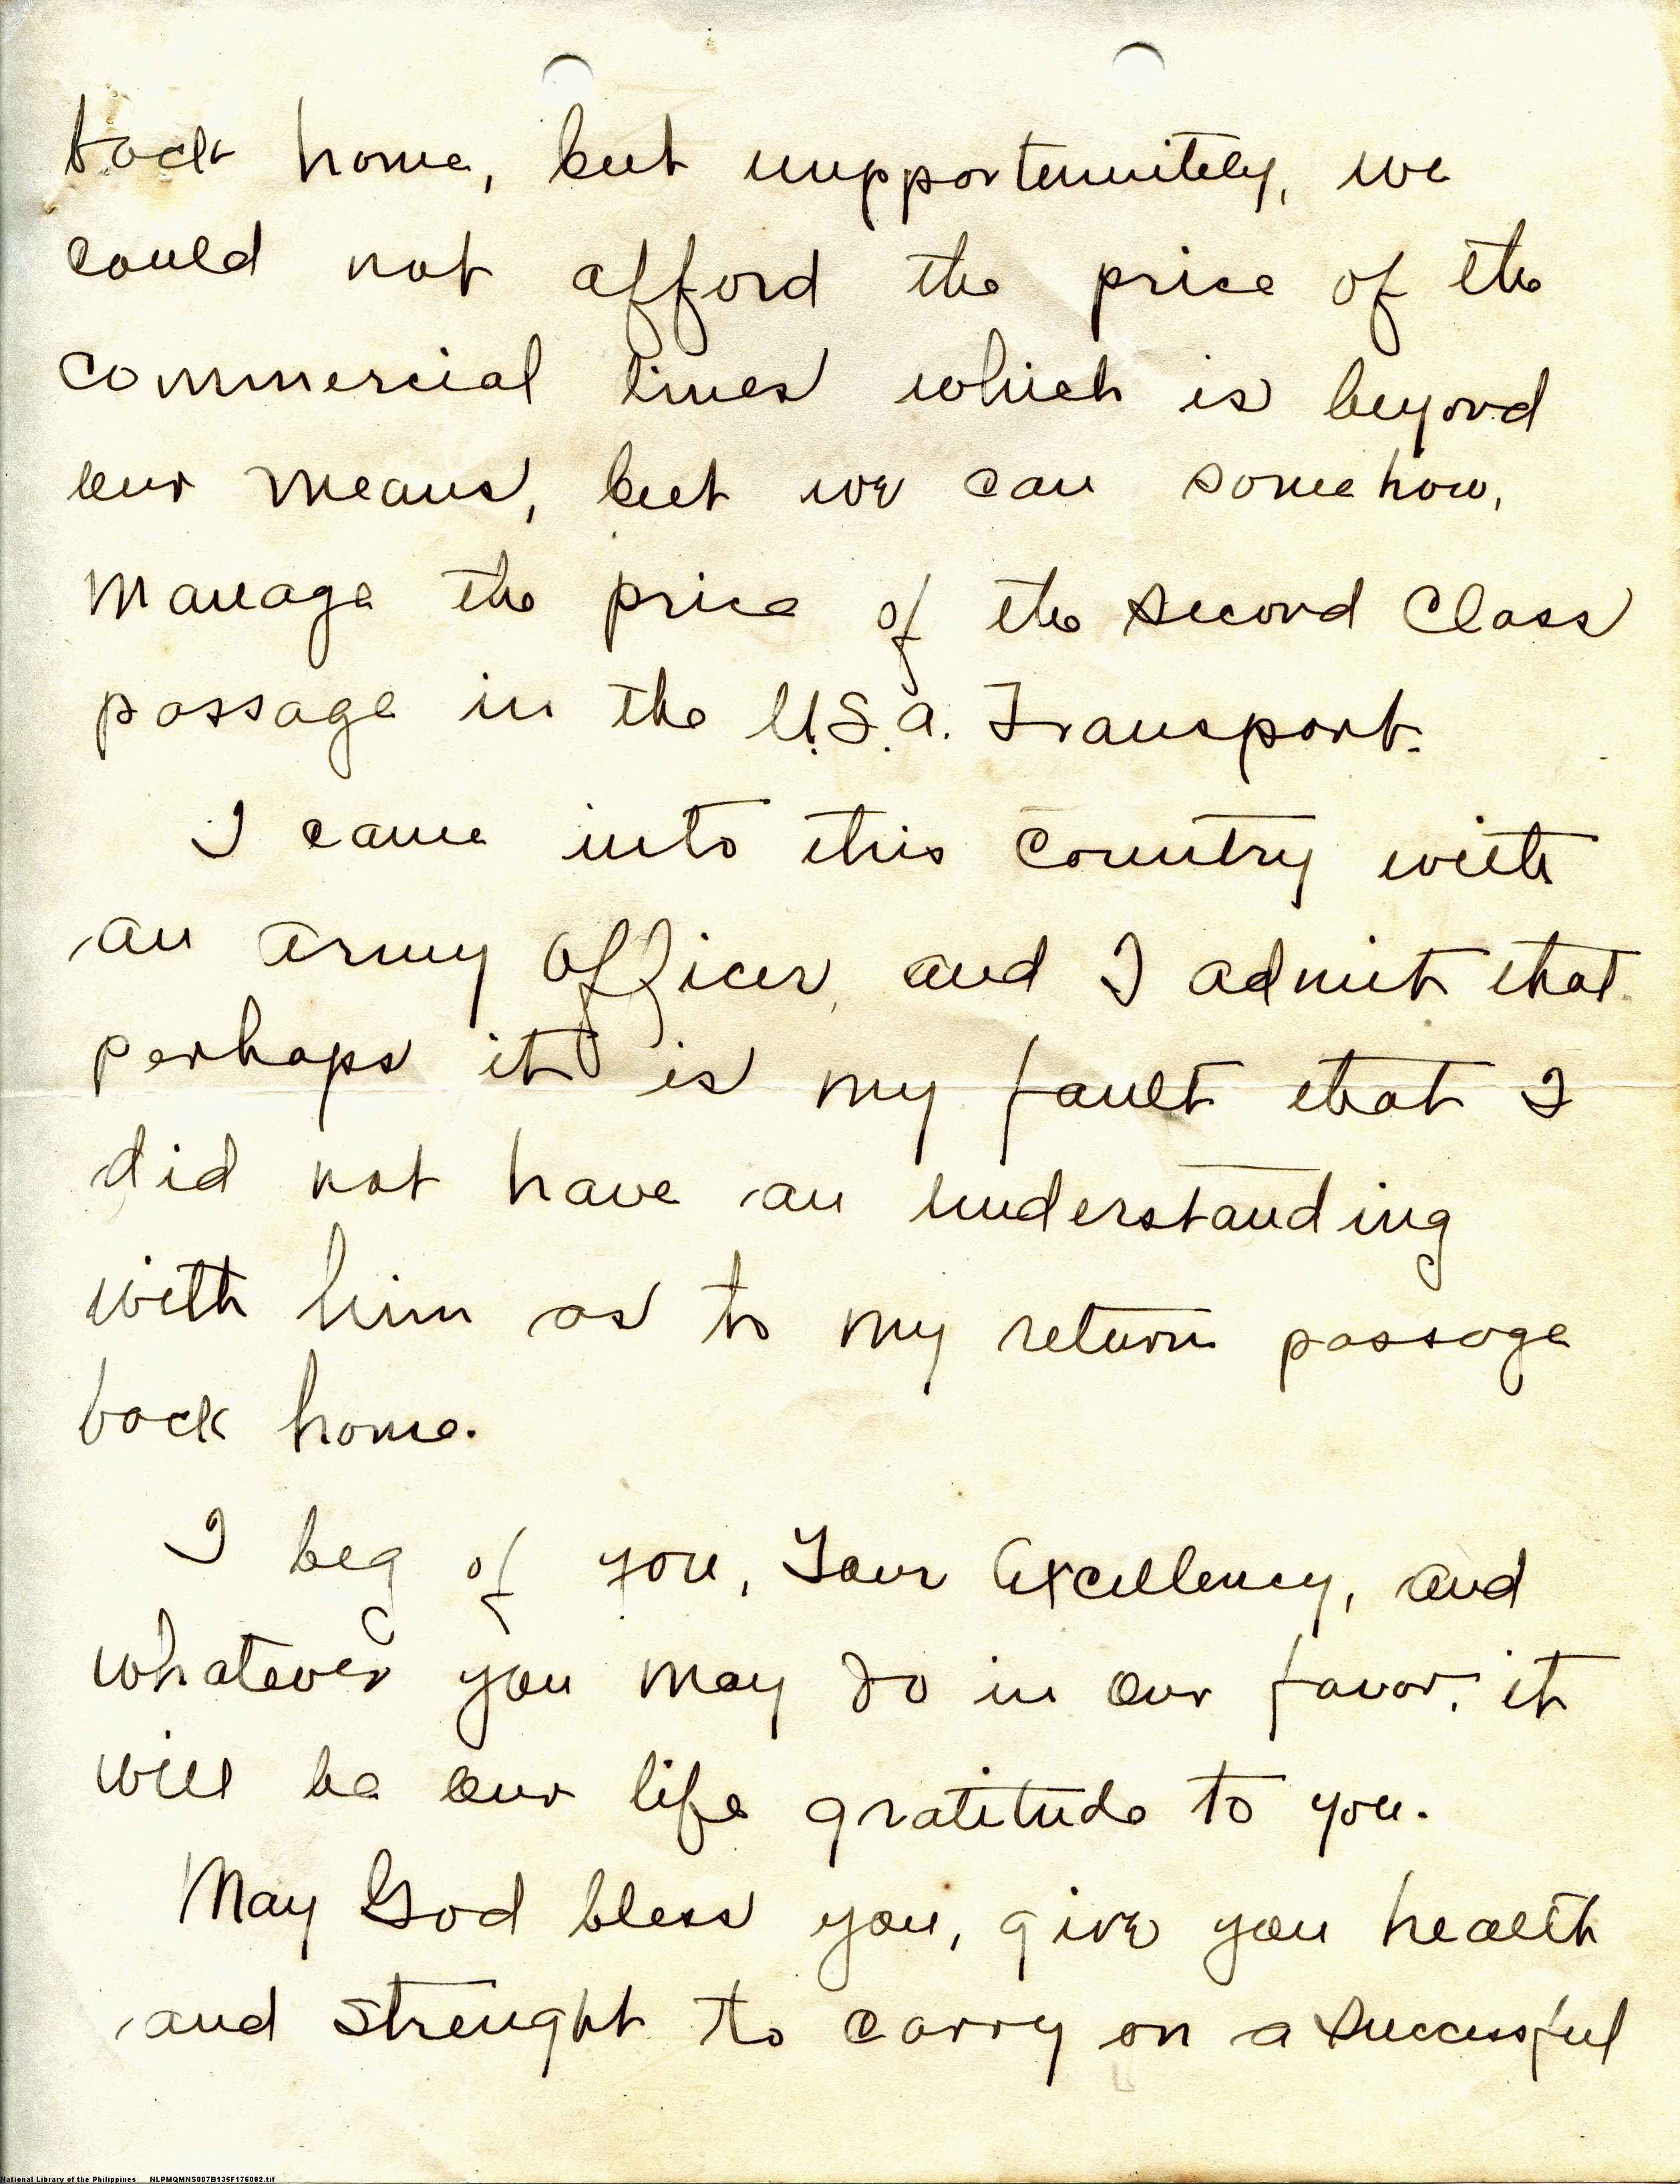 back home, but unpportunnitely, we
could not afford the price of the
commercial lines which is beyond
our means, but we can somehow,
manage the price of the second Class
passage in the U.S.A. Transport.
I came into this country with
an army officer, and I admit that
perhaps it is my fault that I
did not have an understanding
with him as to my return passage
back home.
I beg of you, Your Excellency, and
whatever you may do in our favor, it
will be our life gratitude to you.
May God bless you, give you health
and strenght to carry on a successful
National Library of the Philippines NLPMQMNS007B135F176082.tif